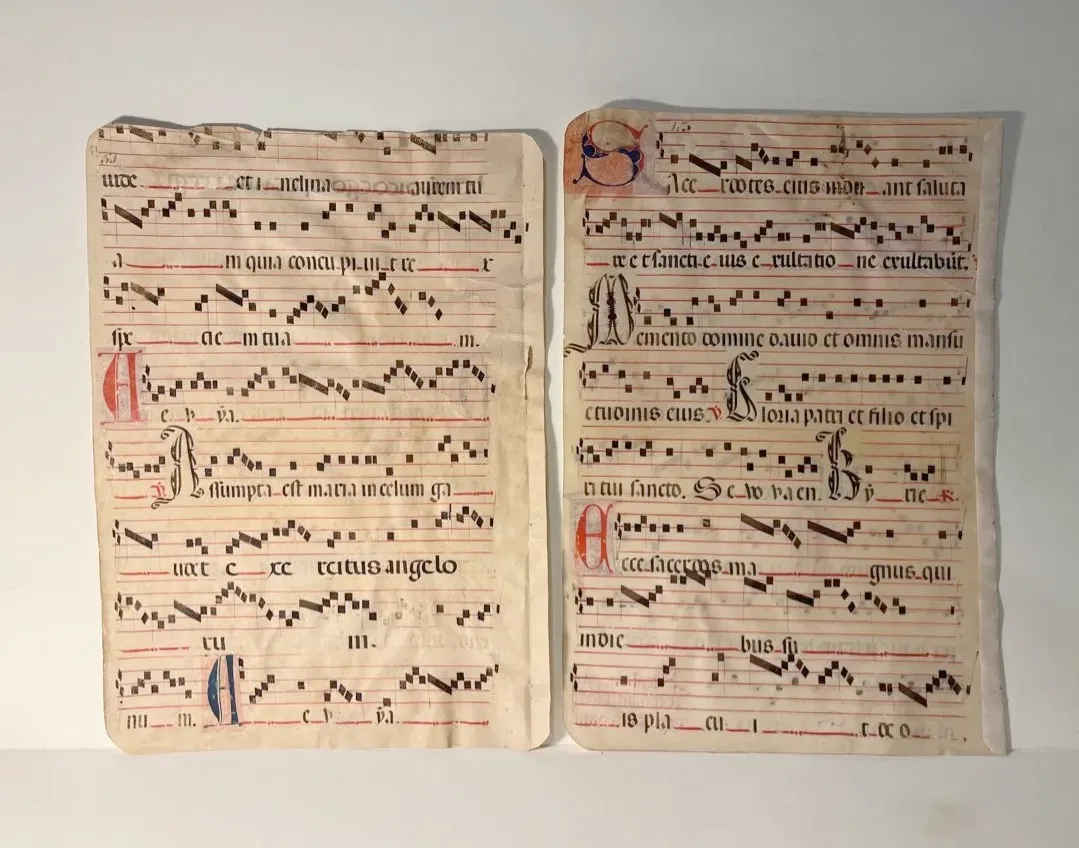 uide et inclina aurem tu
a m quia concu pi uit re x
spe cie m tua m.
A e v ya.
℣ Assumpta est maria in celum ga
udet e xe rcitus angelo
ru m.
nu m. A e v ya.
Sace rdotes eius indu ant saluta
re et sancti e ius e xultatio ne exultabūt.
Memento domine dauid et omnis mansu
etudinis eius ℣ Gloria patri et filio et spi
ritui sancto. S e v o v a en. K y rie ℟.
Ecce sacerdos ma gnus qui
indie bus su
is pla cu i t deo